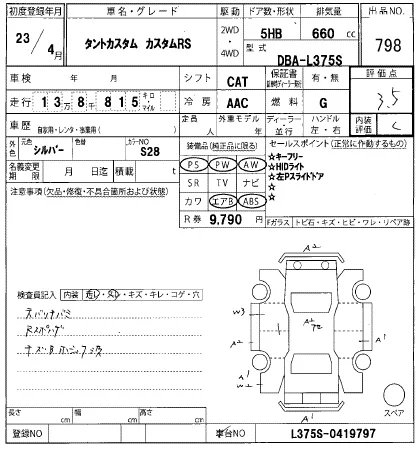 初度登録年月 車名・グレード 駆動 ドア数・形状 排気量 出品NO.
23/4月 タントカスタム カスタムRS 2WD・4WD 5HB 660 cc 798
型式 DBA-L375S
車検 年 月 シフト CAT 保証書 有・無 評価点
走行 13万8千815 キロ・マイル 冷房 AAC 燃料 G 3.5
車歴 自家用・レンタ・ 定員 人 外車モデル 年 ディーラー・並行 ハンドル 左・右 内装評価 C
外色 元色 シルバー 色替 カラーNO S28
装備品(純正品に限る) セールスポイント(正常に動作するもの)
名義変更期限 月 日迄 積載 t
PS PW AW
SR TV ナビ
カワ エアB ABS
☆キーフリー
☆HIDライト
☆左Pスライドドア
☆
☆
注意事項(欠品・修復・不具合箇所および状態)
R券 9,790 円
Fガラス トビ石・キズ・ヒビ・ワレ・リペア跡
検査員記入 内装 キズ・キレ・コゲ・穴
A2
W3
A2
A1
W2
A2
A1
A1
スペア
長さ cm 幅 cm 高さ cm
登録NO 車台NO L375S-0419797